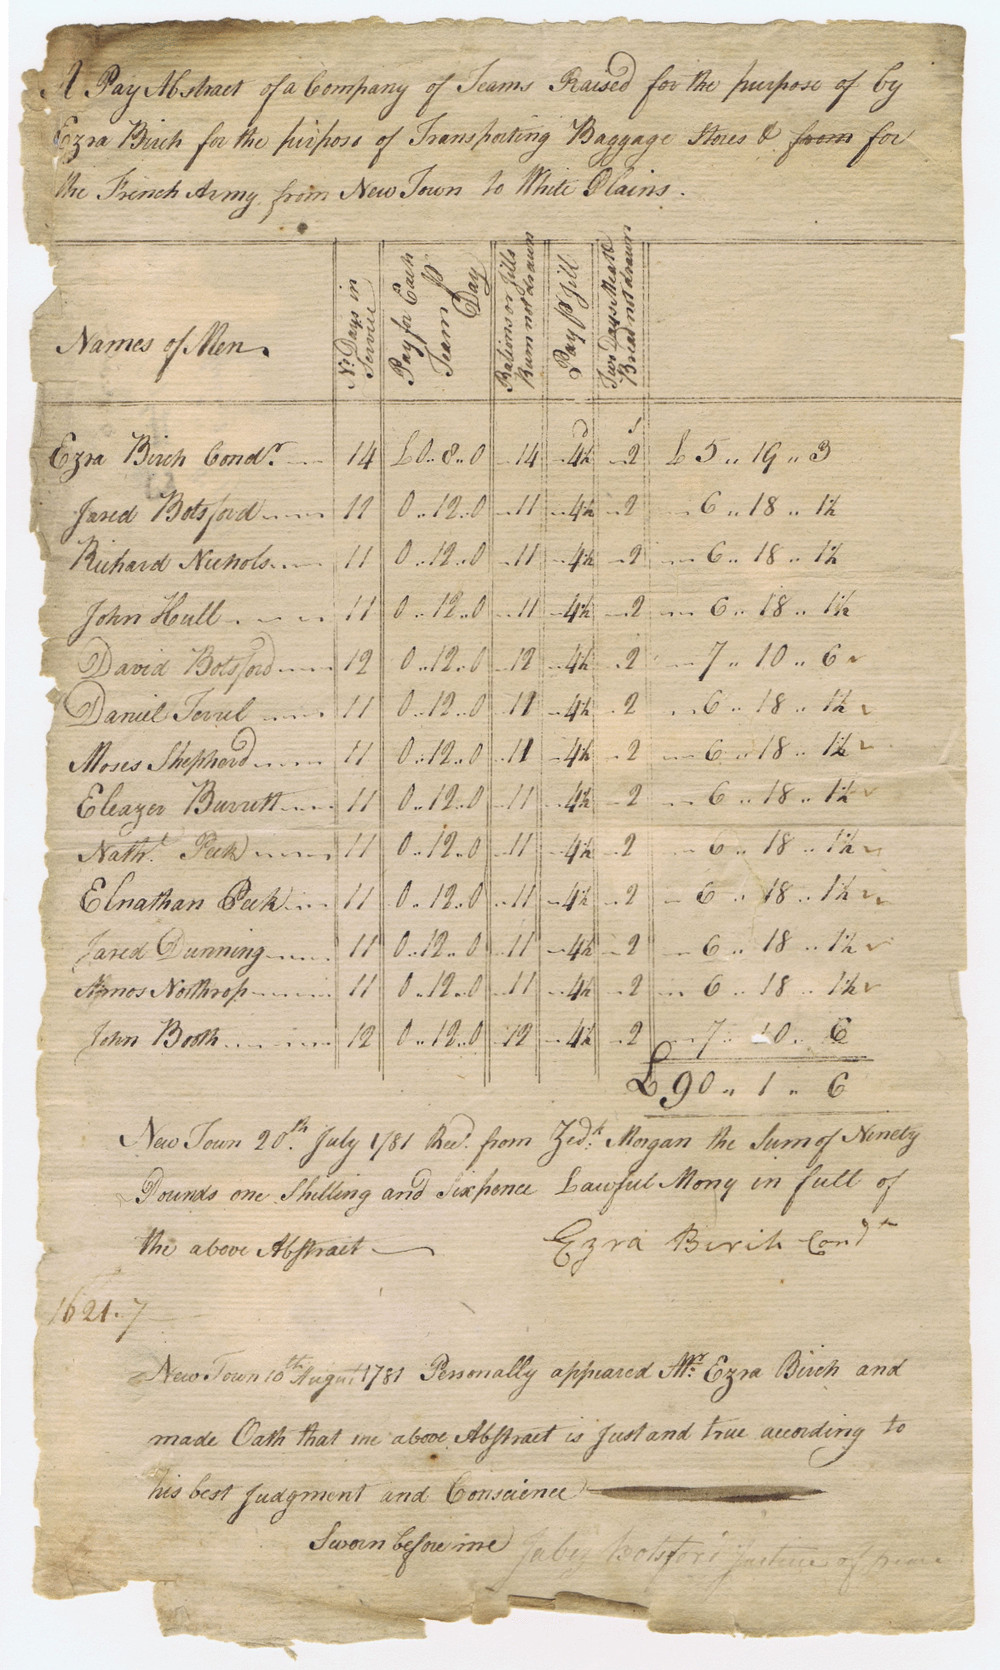 A Pay Abstract of a Company of Teams Raised for the purpose of by
Ezra Birch for the purpose of Transporting Baggage Stores & from for
the French Army from New Town to White Plains.
Names of Men
No. Days in Service
Pay for Each Team pr Day
Rations or Jills Rum not drawn
Pay pr Jill
Two Days Meat & Bread not drawn
d s
Ezra Birch Condr. 14 £0..8..0 14 4½ 2 £5..19..3
Jared Botsford 11 0..12..0 11 4½ 2 6..18..1½
Richard Nichols 11 0..12..0 11 4½ 2 6..18..1½
John Hull 11 0..12..0 11 4½ 2 6..18..1½
David Botsford 12 0..12..0 12 4½ 2 7..10..6
Daniel Terril 11 0..12..0 11 4½ 2 6..18..1½
Moses Shepherd 11 0..12..0 11 4½ 2 6..18..1½
Eleazer Burritt 11 0..12..0 11 4½ 2 6..18..1½
Nathl. Peck 11 0..12..0 11 4½ 2 6..18..1½
Elnathan Peck 11 0..12..0 11 4½ 2 6..18..1½
Jared Dunning 11 0..12..0 11 4½ 2 6..18..1½
Amos Northrop 11 0..12..0 11 4½ 2 6..18..1½
John Booth 12 0..12..0 12 4½ 2 7..10..6
£90..1..6
New Town 20th. July 1781 Recd. from Zedk Morgan the Sum of Ninety
Pounds one Shilling and Sixpence Lawful Mony in full of
the above Abstract Ezra Birch Condr
1621.7
New Town 10th August 1781 Personally appeared Mr. Ezra Birch and
made Oath that the above Abstract is Just and true according to
his best Judgment and Conscience
Sworn before me Jabez Botsford Justice of peace